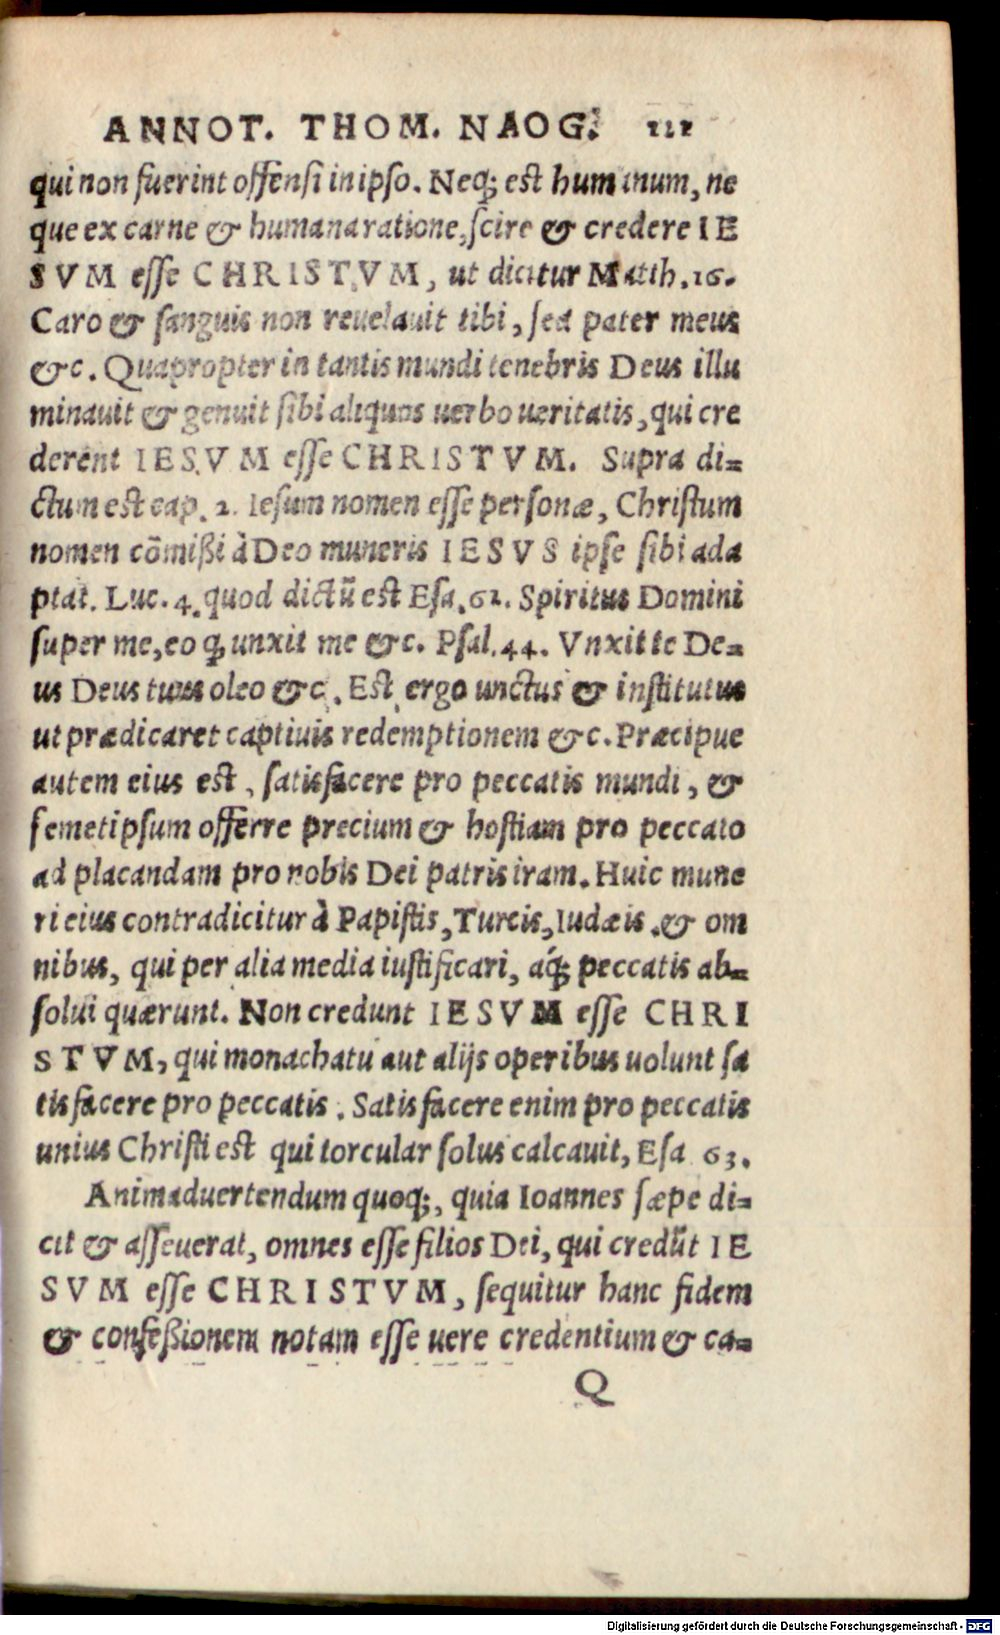 ANNOT. THOM. NAOG. 111
qui non fuerint offensi in ipso. Neq; est humanum, ne
que ex carne & humana ratione, scire & credere IE
SVM esse CHRISTVM, ut dicitur Matth. 16.
Caro & sanguis non reuelauit tibi, sed pater meus
&c. Quapropter in tantis mundi tenebris Deus illu
minauit & genuit sibi aliquos uerbo ueritatis, qui cre
derent IESVM esse CHRISTVM. Supra di=
ctum est cap. 2. Iesum nomen esse personæ, Christum
nomen cōmißi à Deo muneris IESVS ipse sibi ada
ptat. Luc. 4. quod dictū est Esa. 61. Spiritus Domini
super me, eo ꝙ unxit me &c. Psal. 44. Vnxit te De=
us Deus tuus oleo &c. Est ergo unctus & institutus
ut prædicaret captiuis redemptionem &c. Præcipue
autem eius est, satisfacere pro peccatis mundi, &
semetipsum offerre precium & hostiam pro peccato
ad placandam pro nobis Dei patris iram. Huic mune
ri eius contradicitur à Papistis, Turcis, Iudæis, & om
nibus, qui per alia media iustificari, áq; peccatis ab=
solui quærunt. Non credunt IESVM esse CHRI
STVM, qui monachatu aut alijs operibus uolunt sa
tisfacere pro peccatis. Satisfacere enim pro peccatis
unius Christi est qui torcular solus calcauit, Esa 63.
Animaduertendum quoq;, quia Ioannes sæpe di=
cit & asseuerat, omnes esse filios Dei, qui credūt IE
SVM esse CHRISTVM, sequitur hanc fidem
& confeßionem notam esse uere credentium & ca=
Q
Digitalisierung gefördert durch die Deutsche Forschungsgemeinschaft - DFG